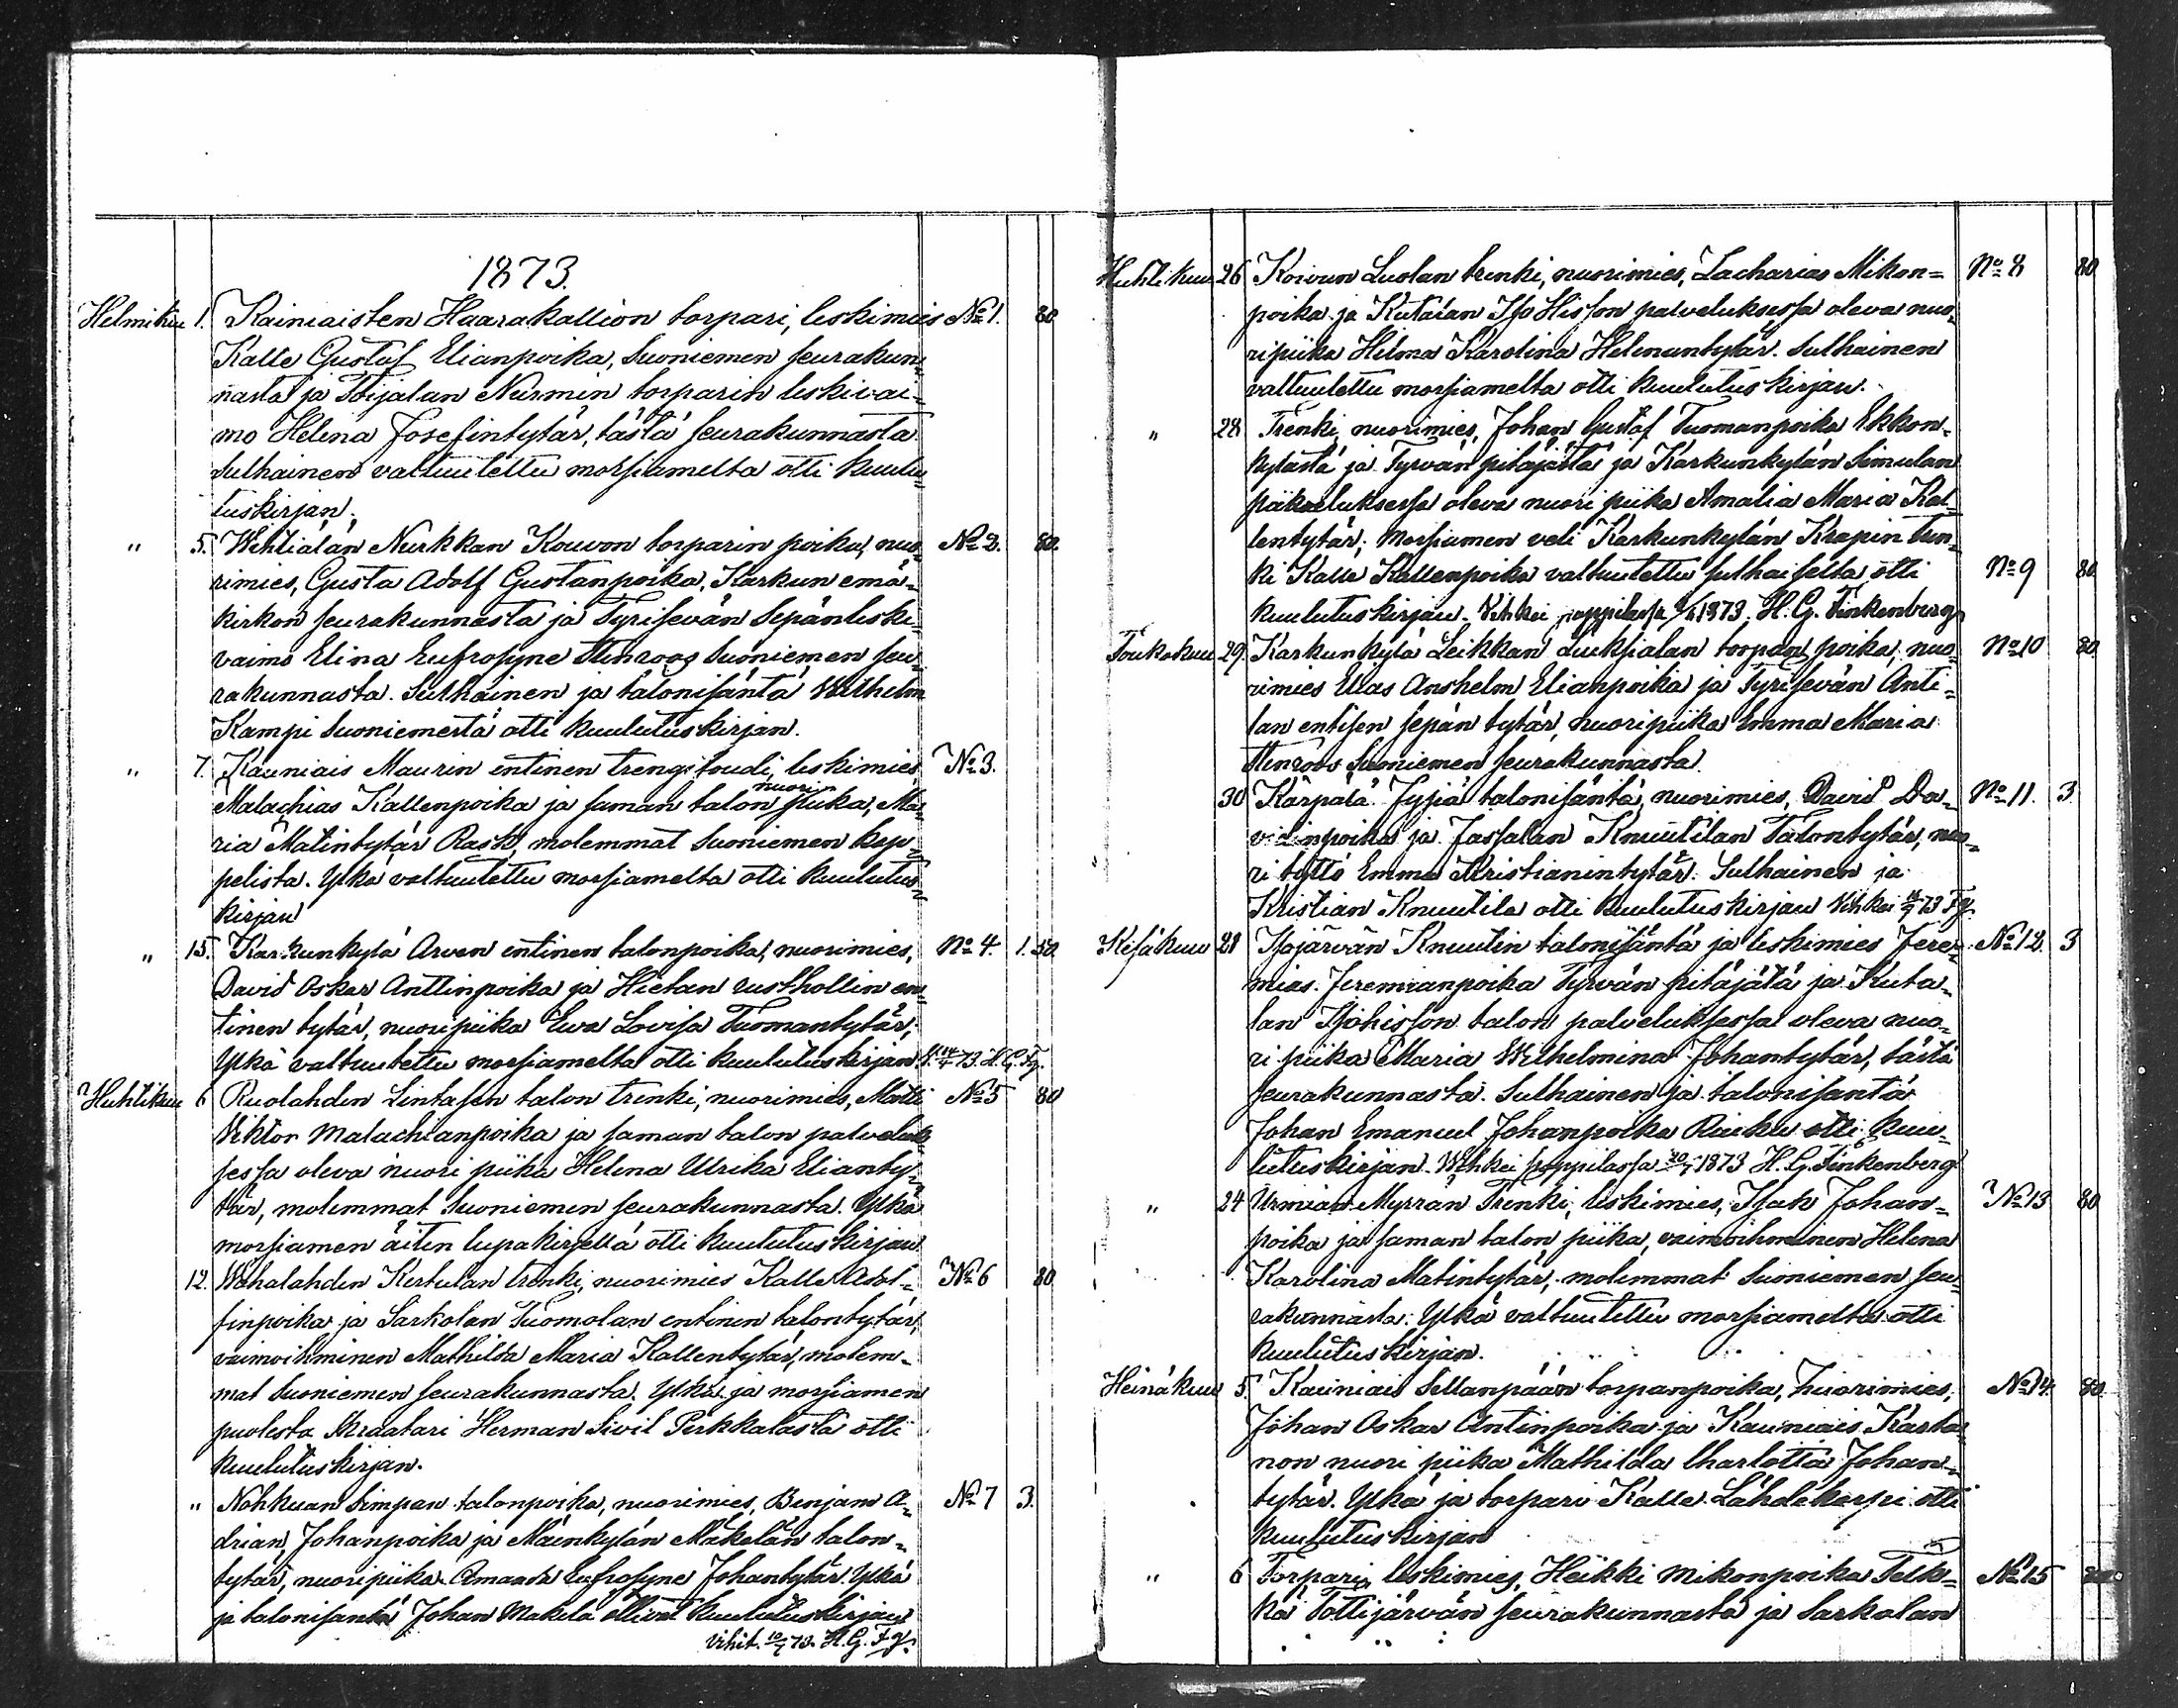 1873.
Helmikuu 1. Kainiaisten Haarakallion torpari, leskimies No 1. 80
Kalle Gustaf Elianpoika, Suoniemen seurakun-
nasta ja Toijalan Nurmin torparin leskivai-
mo Helena Josefintytär, tästä seurakunnasta
Sulhainen valtuutettu morsiamelta otti kuulu-
tuskirjan.
" 5. Wihtiälän Nurkkan Kouvon torparin poika, nuo- No 2. 80.
rimies, Gusta Adolf Gustanpoika, Karkun emä-
kirkon seurakunnasta ja Tyrisevän Sepänleski-
vaimo Elina Eufrosyne Stenroos Suoniemen seu-
rakunnasta. Sulhainen ja talonisäntä Wilhelm
Kampi Suoniemestä otti kuulutuskirjan.
" 7. Kauniais Maurin entinen trengitoudi, leskimies No 3.
Malachias Kallenpoika ja saman talon nuori piika, Ma-
ria Matintytär Rask, molemmat Suoniemen kap-
pelista. Ylkä valtuutettu morsiamelta otti kuulutus-
kirjan
" 15. Karkunkylä Arven entinen talonpoika, nuorimies, No 4. 1. 50.
David Oskar Anttinpoika ja Hietan rusthollin en-
tinen tytär, nuoripiika Ewa Lovisa Tuomantytär,
Ylkä valtuutettu morsiamelta otti kuulutuskirjan. V. 14/4 73. H. G. Fg.
Huhtikuu 6 Ruolahden Lintasen talon trenki, nuorimies, Matti No 5 80
Viktor Malachianpoika ja saman talon palveluk-
sessa oleva nuori piika Helena Ulrika Elianty-
tär, molemmat Suoniemen seurakunnasta. Ylkä
morsiamen äitin lupakirjellä otti kuulutuskirjan
12. Wahalahden Kertulan trenki, nuorimies Kalle Adol- No 6 80.
finpoika ja Sarkolan Tuomolan entinen talontytär,
vaimoihminen Mathilda Maria Kallentytär, molem-
mat Suoniemen seurakunnasta. Ylkä ja morsiamen
puolesta Kraatari Herman Sivil Perkkalasta otti
kuulutuskirjan.
" Nohkuan Simpan talonpoika, nuorimies, Benjam A- No 7 3.
drian, Johanpoika ja Mainkylän Mäkelän talon-
tytär, nuoripiika Amanda Eufrosyne Johantytär. Ylkä
ja talonisäntä Johan Makela ottivat kuulutuskirjan
vihit. 10/7 73. H. G. Fg.
Huhtikuu 26 Koivun Luolan trenki, nuorimies, Zacharias Mikon- No 8 80
poika ja Kutalan Iso Hisson palveluksessa oleva nuo-
ripiika Helma Karolina Helenantytär. Sulhainen
valtuutettu morsiamelta otti kuulutuskirjan.
" 28 Trenki, nuorimies, Johan Gustaf Tuomanpoika Ekkon-
kylästä ja Tyrvän pitäjästä ja Karkunkylän Simulan
palveluksessa oleva nuori piika Amalia Maria Kal-
lentytär; Morsiamen veli Karkunkylän Krapin tren-
ki Kalle Kallenpoika valtuutettu sulhaiselta, otti No 9 80
kuulutuskirjan. Vihkei pappilassa 1873, H. G. Finkenberg
Toukokuu 29. Karkunkylä Leikkan Luuksialan torpan poika, nuo- No 10 80.
rimies Elias Anshelm Elianpoika ja Tyrisevän Anti-
lan entisen sepän tytär, nuoripiika Emma Maria
Stenroos Suoniemen seurakunnasta.
30 Kärpälä Jysiä talonisäntä, nuorimies, David Da- No 11. 3.
vidinpoika ja Tassalan Knuutilan Talontytär, nuo-
ri tyttö Emma Kristianintytär. Sulhainen ja
Kristian Knuutila otti kuulutuskirjan Vihkei 73 Fg.
Kesäkuu 21 Isojärvän Knuutin talonisäntä ja leskimies Jere- No 12. 3
mias Jeremianpoika Tyrvän pitäjätä ja Kuta-
lan Isohisson talon palveluksessa oleva nuo-
ri piika Maria Wilhelmina Johantytär, tästä
seurakunnasta. Sulhainen ja talonisäntä
Johan Emanuel Johanpoika Riuku otti kuu-
lutuskirjan. Wihkei pappilassa 20/7 1873 H. G. Finkenberg
" 24 Urmian Myrran Trenki, leskimies, Isak Johan- No 13 80
poika ja saman talon piika, vaimoihminen Helena
Karolina Matintytär, molemmat Suoniemen seu-
rakunnasta. Ylkä valtuutettu morsiamelta otti
kuulutuskirjan.
Heinäkuu 5. Kauniais Sillanpään torpanpoika, nuorimies, No 14. 80.
Johan Oskar Antinpoika ja Kauniais Karta-
non nuori piika Mathilda Charlotta Johan-
tytär. Ylkä ja torpari Kalle Lähdekorpi otti
kuulutuskirjan
" 6 Torpari, leskimies, Heikki Mikonpoika Telk- No 15
kä Tottijärvän seurakunnasta ja Sarkolan